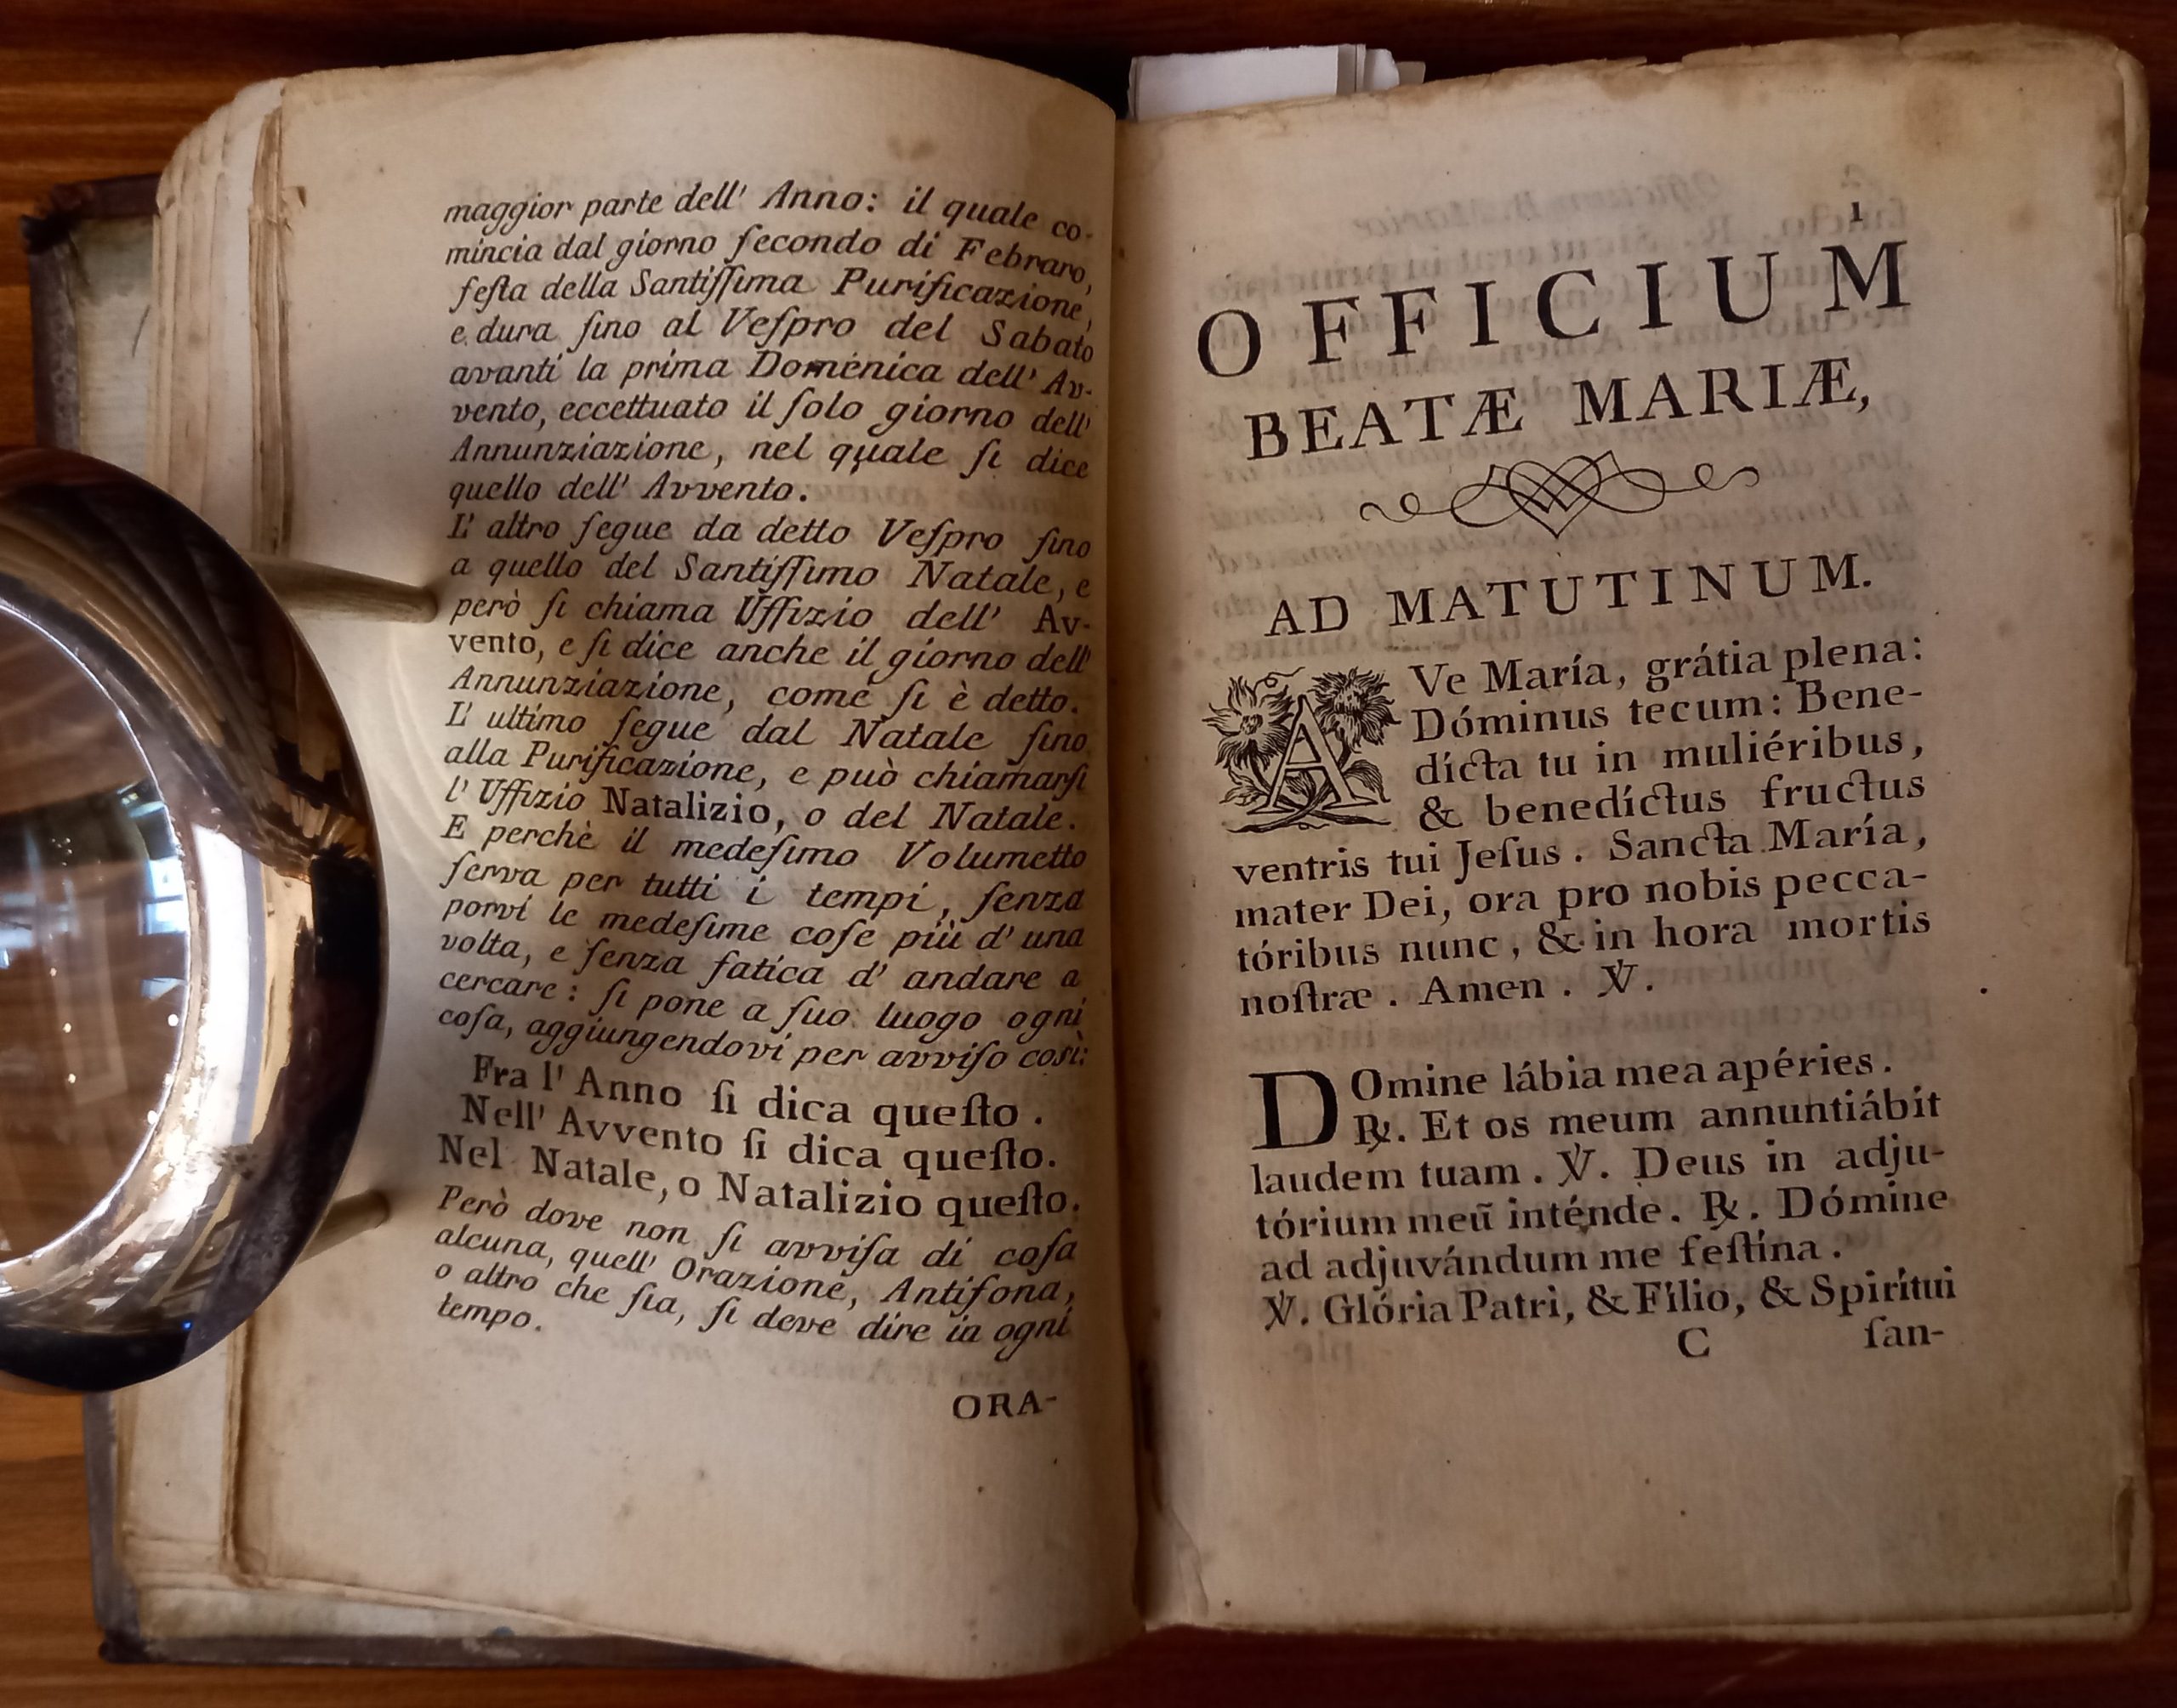 maggior parte dell' Anno: il quale co-
mincia dal giorno ſecondo di Febraro,
feſta della Santiſſima Purificazione,
e dura ſino al Veſpro del Sabato
avanti la prima Domenica dell' Av-
vento, eccettuato il ſolo giorno dell'
Annunziazione, nel quale ſi dice
quello dell' Avvento.
L' altro ſegue da detto Veſpro ſino
a quello del Santiſſimo Natale, e
però ſi chiama Uffizio dell' Av-
vento, e ſi dice anche il giorno dell'
Annunziazione, come ſi è detto.
L' ultimo ſegue dal Natale ſino
alla Purificazione, e può chiamarſi
l' Uffizio Natalizio, o del Natale.
E perchè il medeſimo Volumetto
ſerva per tutti i tempi, ſenza
porvi le medeſime coſe più d' una
volta, e ſenza fatica d' andare a
cercare: ſi pone a ſuo luogo ogni
coſa, aggiungendovi per avviſo così:
Fra l' Anno ſi dica queſto.
Nell' Avvento ſi dica queſto.
Nel Natale, o Natalizio queſto.
Però dove non ſi avviſa di coſa
alcuna, quell' Orazione, Antifona,
o altro che ſia, ſi deve dire in ogni
tempo.
ORA-
1
OFFICIUM
BEATÆ MARIÆ,
AD MATUTINUM.
AVe María, grátia plena:
Dóminus tecum: Bene-
dícta tu in muliéribus,
& benedíctus fructus
ventris tui Jeſus. Sancta María,
mater Dei, ora pro nobis pecca-
tóribus nunc, & in hora mortis
noſtræ. Amen. ℣.
DOmine lábia mea apéries.
℟. Et os meum annuntiábit
laudem tuam. ℣. Deus in adju-
tórium meũ inténde. ℟. Dómine
ad adjuvándum me feſtína.
℣. Glória Patri, & Fílio, & Spirítui
C ſan-